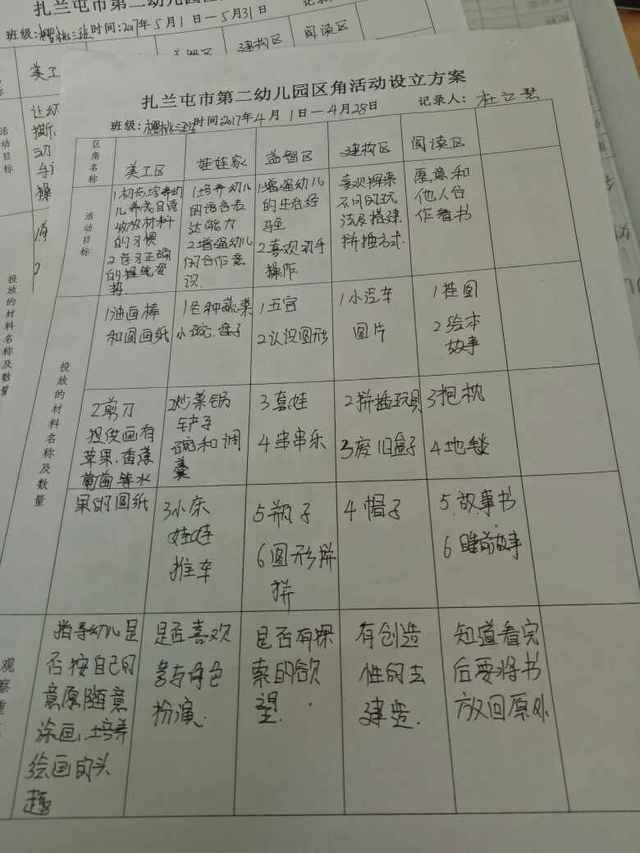 扎兰屯市第二幼儿园区
班级:樱桃三班时间:2017年5月1日—5月31日
建构区
阅读区
美工
活动目标
投放的材料名称及数量
扎兰屯市第二幼儿园区角活动设立方案
班级:樱桃三班时间2017年4月1日—4月28日
记录人:
区角名称
美工区
娃娃家
益智区
建构区
阅读区
活动目标
1.初步培养幼
儿养成自语
收放材料
的习惯
2.学习正确
的握笔姿
势
1.培养幼儿
的语言表
达能力
2.增强幼儿
的合作意
识.
1.增强幼儿
的生活经
验
2.喜欢动手
操作
喜欢探索
不同的玩
法及搭建
拼插方式.
愿意和
他人合
作看书
投放的材料名称及数量
1油画棒
和图画纸
1各种蔬菜
小碗.盘子
1五官
2认识图形
1小汽车
图片
1挂图
2绘本
故事
2剪刀
画有
苹果.香蕉
葡萄等水
果的图纸
2炒菜锅
铲子
碗和调
羹
3套娃
4串串乐
2拼插玩具
3废旧盒子
3抱枕
4地毯
3小床
娃娃
推车
5瓶子
6图形拼
拼
4帽子
5.故事书
6睡前故事
观察重
指导幼儿是
否按自己的
意愿随意
涂画,培养
绘画的兴
趣
是否喜欢
参与角色
扮演.
是否有探
索的欲
望.
有创造
性的去
建造.
知道看完
后要将书
放回原处